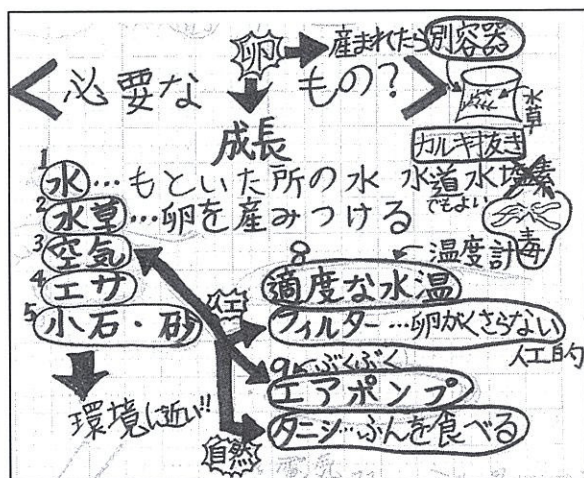 卵 → 産まれてたら 別容器
<必要なもの?>
水草
成長
カルキ抜き
1 水…もといた所の水 水道水 塩素
でもよい
毒
2 水草…卵を産みつける
3 空気
4 エサ
5 小石・砂
環境に近い!!
8 適度な水温 ← 温度計
人工
フィルター…卵がくさらない
人工的
9 ぶくぶく
エアポンプ
自然
タニシ…ふんを食べる